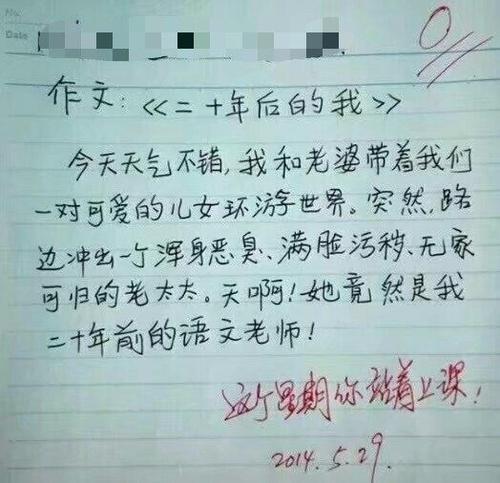 No.
Date
0
作文：《二十年后的我》
今天天气不错，我和老婆带着我们
一对可爱的儿女环游世界。突然，路
边冲出一个浑身恶臭、满脸污秽、无家
可归的老太太。天啊！她竟然是我
二十年前的语文老师！
这个星期你站着上课！
2014.5.29.